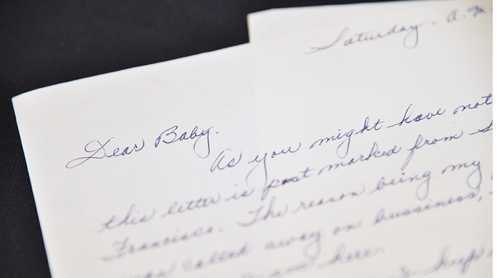 Saturday, a.m.
Dear Baby,
As you might have not
this letter is post marked from S
Francisco. The reason being my
was called away on bussiness,
here.